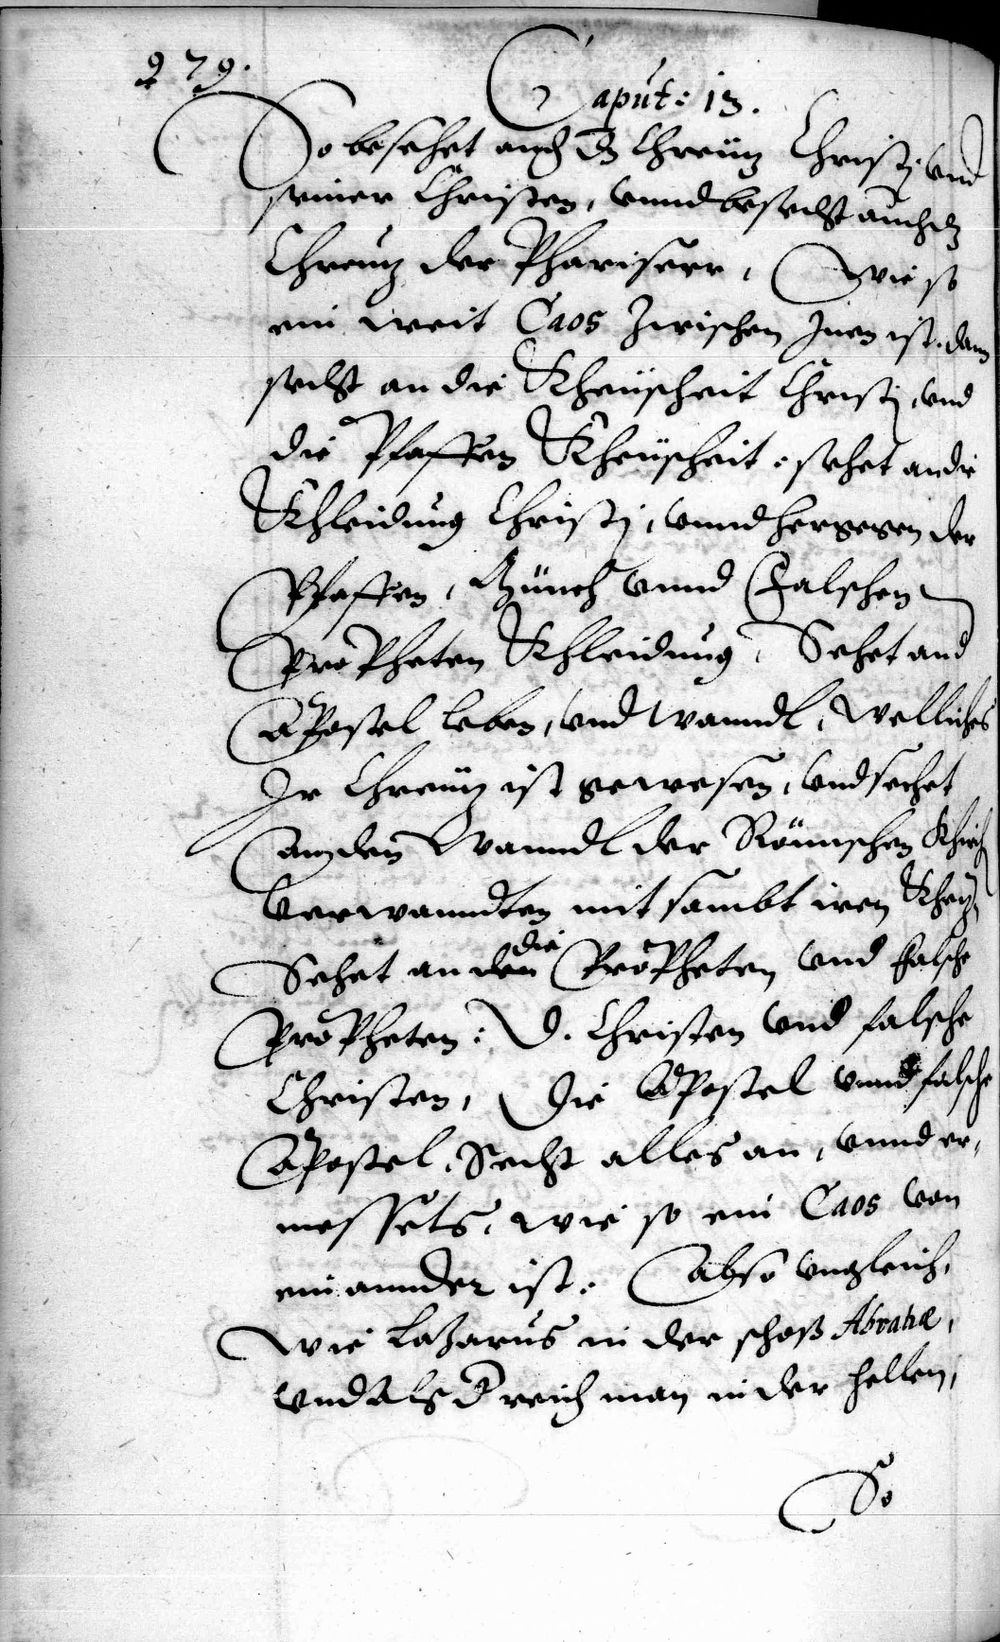 279.
Caput: 13.
So besehet auch dz Chreütz Christj, vnd
seiner Christen, vnnd besecht auch dz
Chreutz der Phariseer, Wie so
ein weit Caos Zwischen Inen ist. dann
secht an die Kheüscheit Christj, vnd
die Pfaffen Kheüscheit. sehet an die
Khleidung Christj, vnnd hergegen der
Pfaffen, Münch vnnd Falschen
Propheten Khleidung, Sehet an d
Apostel leben, vnd Wanndl, Welliches
Ir Chreütz ist gewesen, vnd sechet
an den Wanndl der Römischen Khirch
Verwanndten mit sambt iren
Sehet an die Propheten vnd falsche
Propheten: D. Christen vnd falsche
Christen, Die Apostel vnnd falsche
Apostel. Secht alles an, vnnd er,
messets, wie so ein Caos von
einannder ist. Also vngleich,
Wie Lazarus in der schoß Abrahæ,
vnd Als d reich man in der hellen,
So